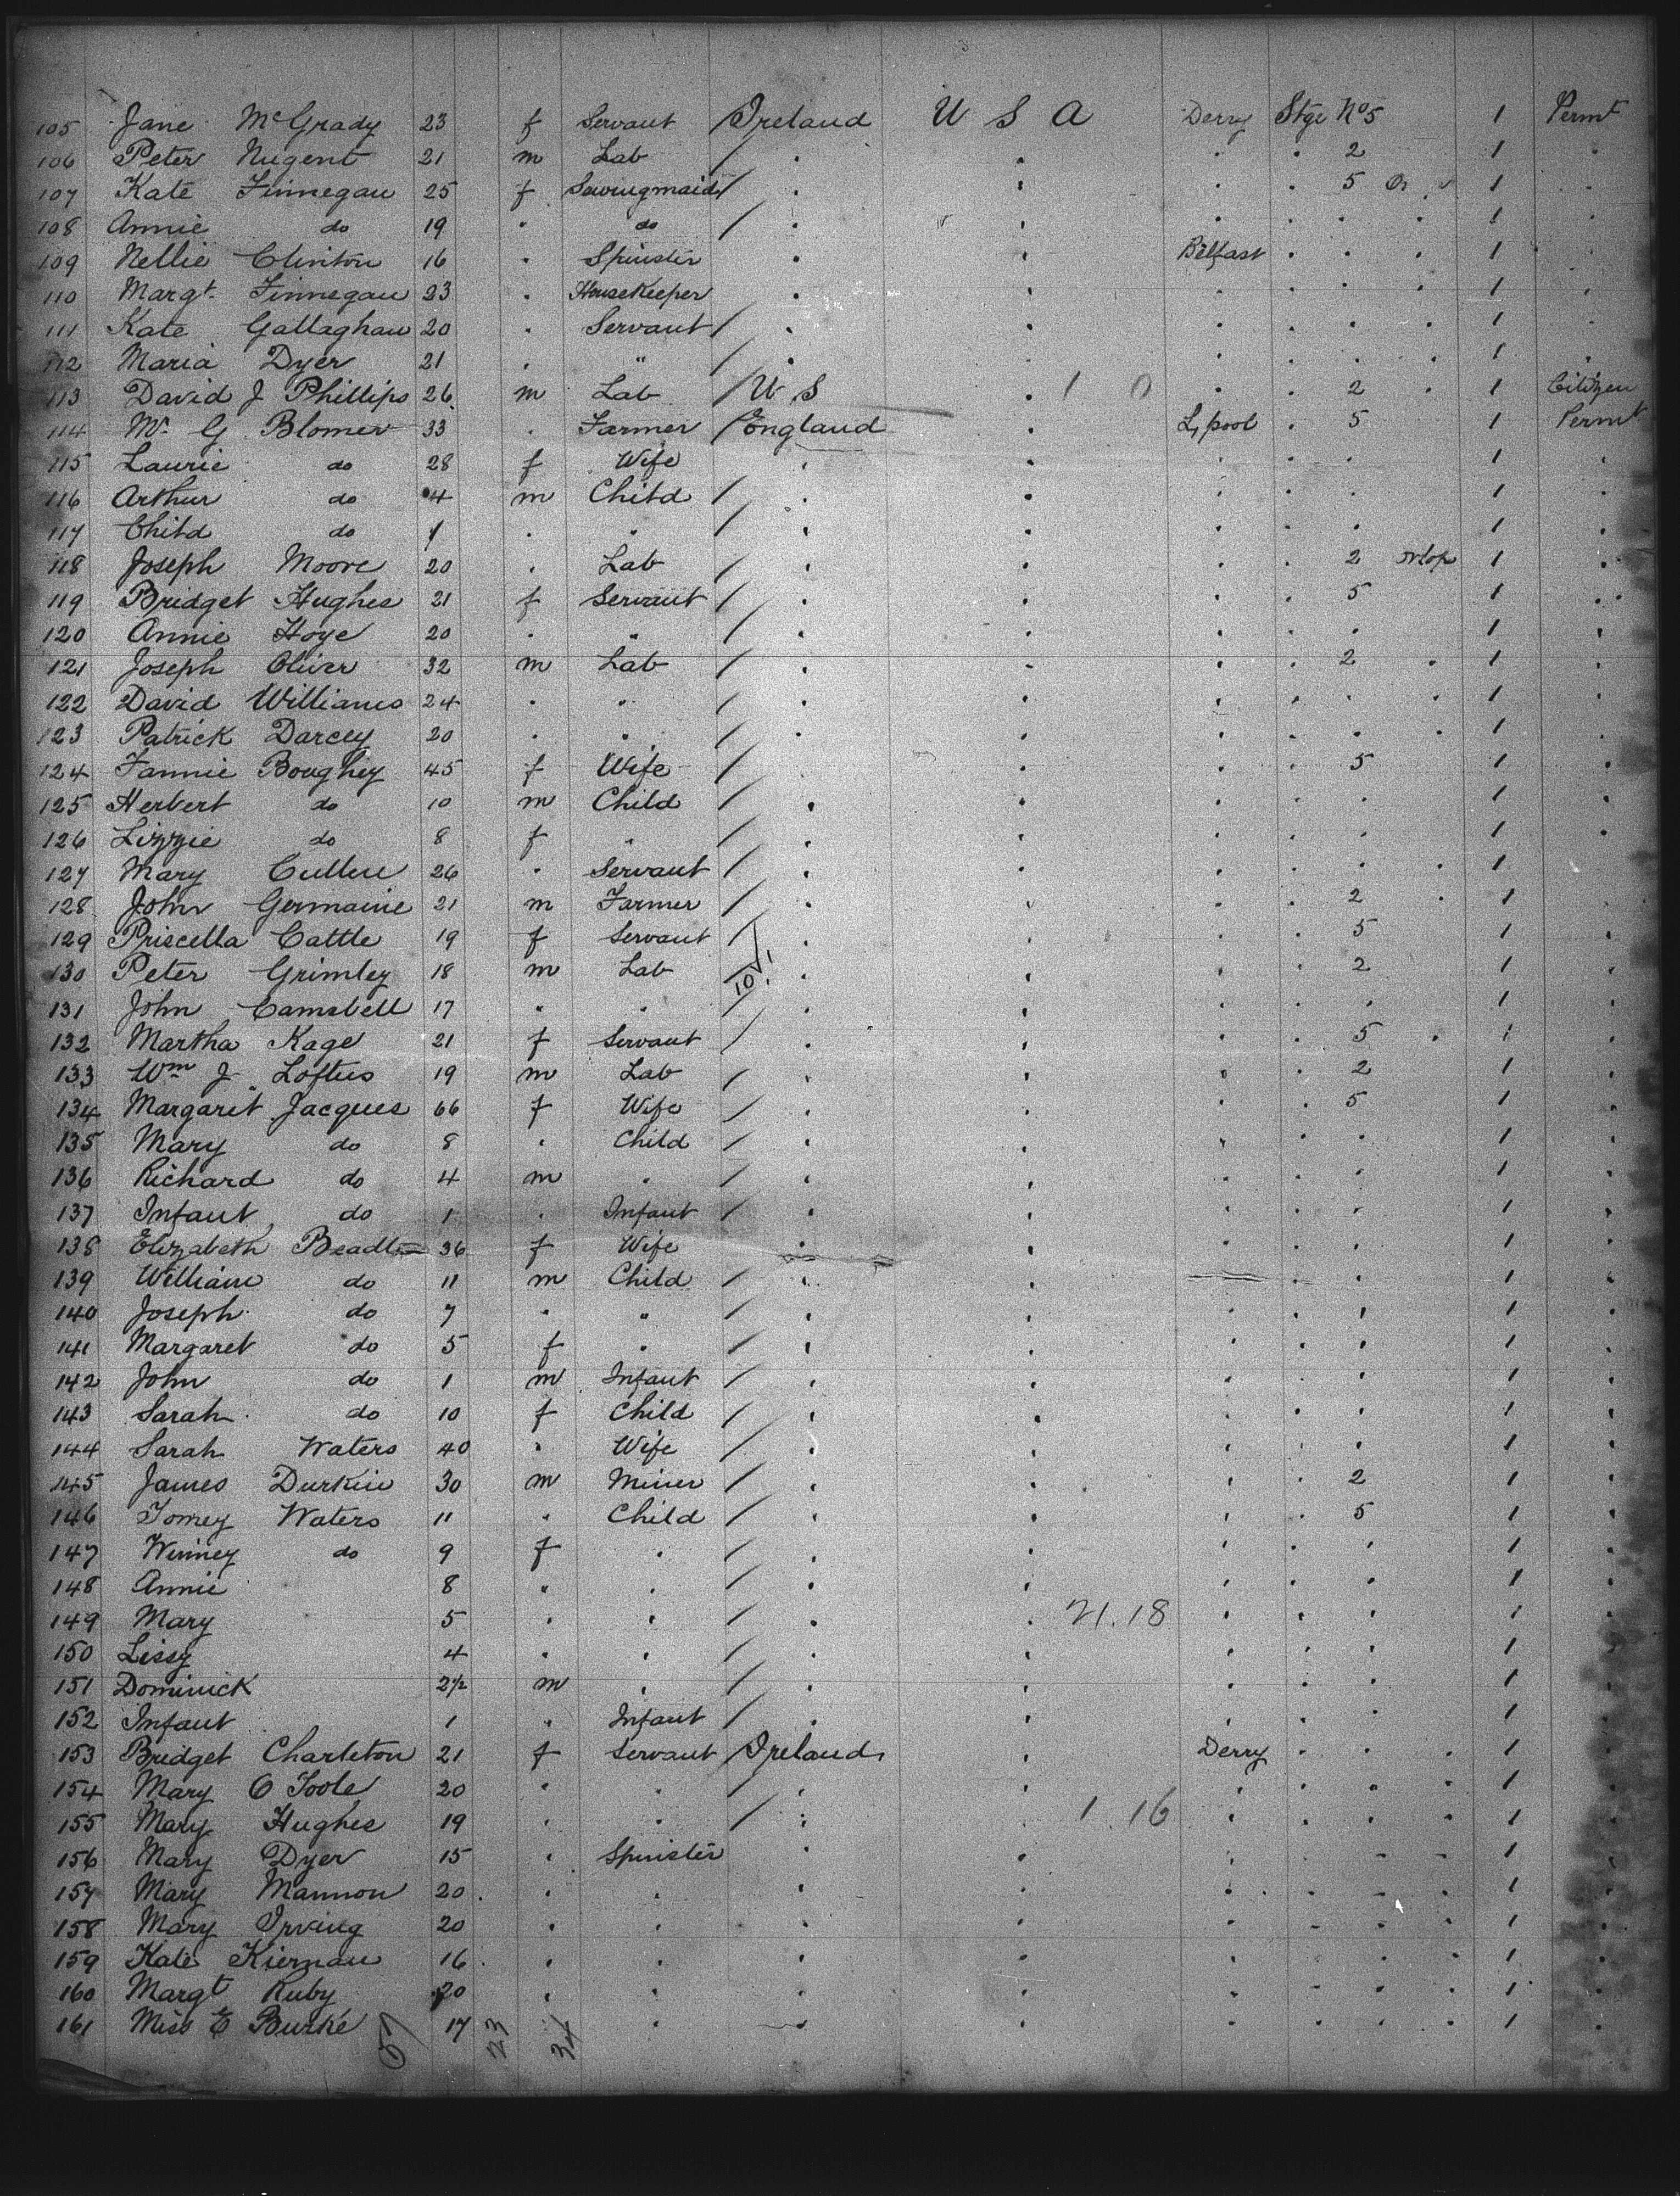 105 Jane McGrady 23 f Servant Ireland U S A Derry Stge No 5 1 Permt
106 Peter Nugent 21 m Lab / . . . . 2 1 .
107 Kate Finnegan 25 f Sewingmaid / . . . . 5 1 .
108 Annie do 19 . do / . . . . . . 1 .
109 Nellie Clinton 16 . Spinster . . Belfast . . . 1
110 Margt. Finnegan 23 . HouseKeeper . . . . . . 1 .
111 Kate Gallaghan 20 . Servant / . . . . . . 1 .
112 Maria Dyer 21 . " / . . . . . . 1 .
113 David J Phillips 26 m Lab / U S . 1 0 . . 2 . 1 Citizen
114 Mr G Blomer 33 . Farmer / England . L,pool . 5 1 Permt
115 Laurie do 28 f Wife . . . . . 1 .
116 Arthur do 4 m Child / . . . . . 1 .
117 Child do 1 . " / . . . . . 1 .
118 Joseph Moore 20 . Lab / . . . . 2 1 .
119 Bridget Hughes 21 f Servant / . . . . 5 1 .
120 Annie Hoye 20 . " / . . . . . 1 .
121 Joseph Oliver 32 m Lab / . . . . 2 . 1 .
122 David Williams 24 . " / . . . . . . 1 .
123 Patrick Darcey 20 . " / . . . . . . 1 .
124 Fannie Boughey 45 f Wife / . . . . 5 1 .
125 Herbert do 10 m Child / . . . . . 1 .
126 Lizzie do 8 f " / . . . . . 1 .
127 Mary Cullen 26 . Servant / . . . . . . 1
128 John Germaine 21 m Farmer / . . . . 2 . 1 .
129 Priscella Cattle 19 f Servant / . . . . 5 1 .
130 Peter Grimley 18 m Lab 10/ . . . . 2 1 .
131 John Camsbell 17 " " / . . . . . 1 .
132 Martha Kage 21 f Servant / . . . . 5 . 1 .
133 Wm J Loftus 19 m Lab / . . . . 2 1 .
134 Margaret Jacques 66 f Wife / . . . . 5 1 .
135 Mary do 8 . Child / . . . . . 1 .
136 Richard do 4 m " / . . . . . 1 .
137 Infant do 1 . Infant / . . . . . 1 .
138 Elizabeth Beadle 36 f Wife . . . . . 1 .
139 William do 11 m Child / . . . . 1 .
140 Joseph do 7 " " / . . . . . 1 .
141 Margaret do 5 f " / . . . . . 1 .
142 John do 1 m Infant / . . . . . 1 .
143 Sarah do 10 f Child / . . . . . 1 .
144 Sarah Waters 40 " Wife / . . . . . 1 .
145 James Durkin 30 m Miner / . . . . 2 1 .
146 Tomey Waters 11 " Child / . . . . 5 1 .
147 Winney do 9 f . / . . . . . 1 .
148 Annie 8 " . / . . . . . 1 .
149 Mary 5 . . / . . 21.18 . . . 1 .
150 Lissy 4 . . / . . . . . 1 .
151 Dominick 2½ m . / . . . . . 1 .
152 Infant 1 . Infant / . . . . . 1 .
153 Bridget Charleton 21 f Servant / Ireland . Derry . . . 1 .
154 Mary O Toole 20 " . / . . . . . . 1 .
155 Mary Hughes 19 . . / . . 1.16 . . . . 1 .
156 Mary Dyer 15 . Spinster . . . . . . 1 .
157 Mary Mannon 20 . . . . . . . . 1 .
158 Mary Irving 20 . . . . . . . . 1 .
159 Kate Kiernan 16 . . . . . . . . 1 .
160 Margt Ruby 20 . . . . . . . . 1 .
161 Miss E Burke 17 . . . . . . . 1 .
57 23 34